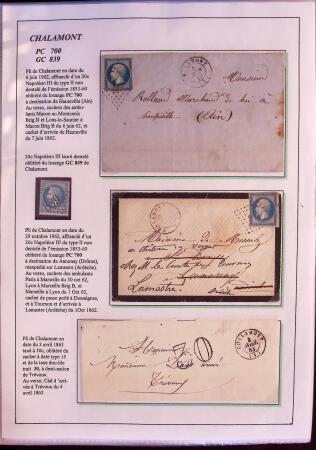 CHALAMONT
PC 700
GC 839
Pli de Chalamont en date du
6 juin 1862, affranchi d'un 20c
Napoléon III du type II non
dentelé de l'émission 1853-60
oblitéré du losange PC 700
à destination de Hauteville (Ain)
Au verso, cachets des ambu-
lants Macon au Montcenis
Brig D et Lons-le-Saunier à
Macon Brig B du 6 juin 62, et
cachet d'arrivée de Hauteville
du 7 juin 1862.
Monsieur
Rolland Marchand de
(Ain)
20c Napoléon III lauré dentelé
oblitéré du losange GC 839 de
Chalamont.
Pli de Chalamont en date du
29 octobre 1862, affranchi d'un
20c Napoléon III du type II non
dentelé de l'émission 1853-60
oblitéré du losange PC 700
à destination de Annonay (Drôme),
réexpédié sur Lamastre (Ardèche)
Au verso, cachets des ambulants
Paris à Marseille du 30 oct 62,
Lyon à Marseille Brig B, et
Marseille à Lyon du 1 Oct 62,
cachet de passe porlé à Dessaignes,
et à Tournon et d'arrivée à
Lamastre (Ardèche) du 1Oct 1862.
Madame de
Lamastre
Pli de Chalamont en
date du 3 avril 1863
taxé à 30c, oblitéré du
cachet à date type 15
et de la taxe dou-ble
trait 30, à desti-nation
de Trévoux.
Au verso, Cad d 'arri-
vée à Trévoux du 4
avril 1863.
CHALAMONT
3
AVRIL
63
Monsieur
Trévoux